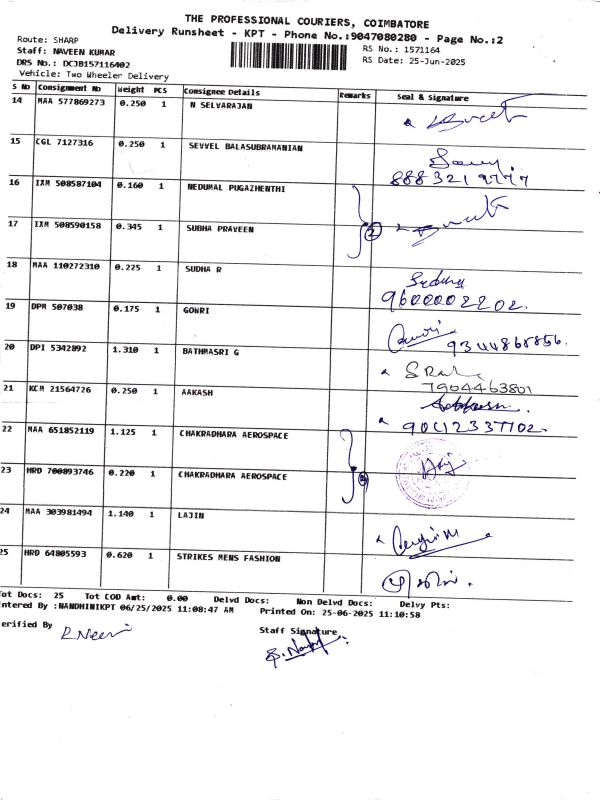 THE PROFESSIONAL COURIERS, COIMBATORE
Delivery Runsheet - KPT - Phone No.:9047080280 - Page No.:2
Route: SHARP
Staff: NAVEEN KUMAR
DRS No.: DCJB157116402
Vehicle: Two Wheeler Delivery
RS No.: 1571164
RS Date: 25-Jun-2025
S No Consignment No Weight PCS Consignee Details Remarks Seal & Signature
14 MAA 577869273 0.250 1 N SELVARAJAN
15 CGL 7127316 0.250 1 SEVVEL BALASUBRAMANIAN
8883219777
16 IXM 508587104 0.160 1 NEDUMAL PUGAZHENTHI
17 IXM 508590158 0.345 1 SUBHA PRAVEEN 2
18 MAA 110272310 0.225 1 SUDHA R
9600002202.
19 DPM 507038 0.175 1 GOWRI
9344868856.
20 DPI 5342892 1.310 1 BATHMASRI G
7904463801
21 KCM 21564726 0.250 1 AAKASH
22 MAA 651852119 1.125 1 CHAKRADHARA AEROSPACE
23 HRD 700893746 0.220 1 CHAKRADHARA AEROSPACE
24 MAA 303981494 1.140 1 LAJIN
25 HRD 64805593 0.620 1 STRIKES MENS FASHION
Tot Docs: 25 Tot COD Amt: 0.00 Delvd Docs: Non Delvd Docs: Delvy Pts:
Entered By :NANDHINIKPT 06/25/2025 11:08:47 AM Printed On: 25-06-2025 11:10:58
Verified By
Staff Signature